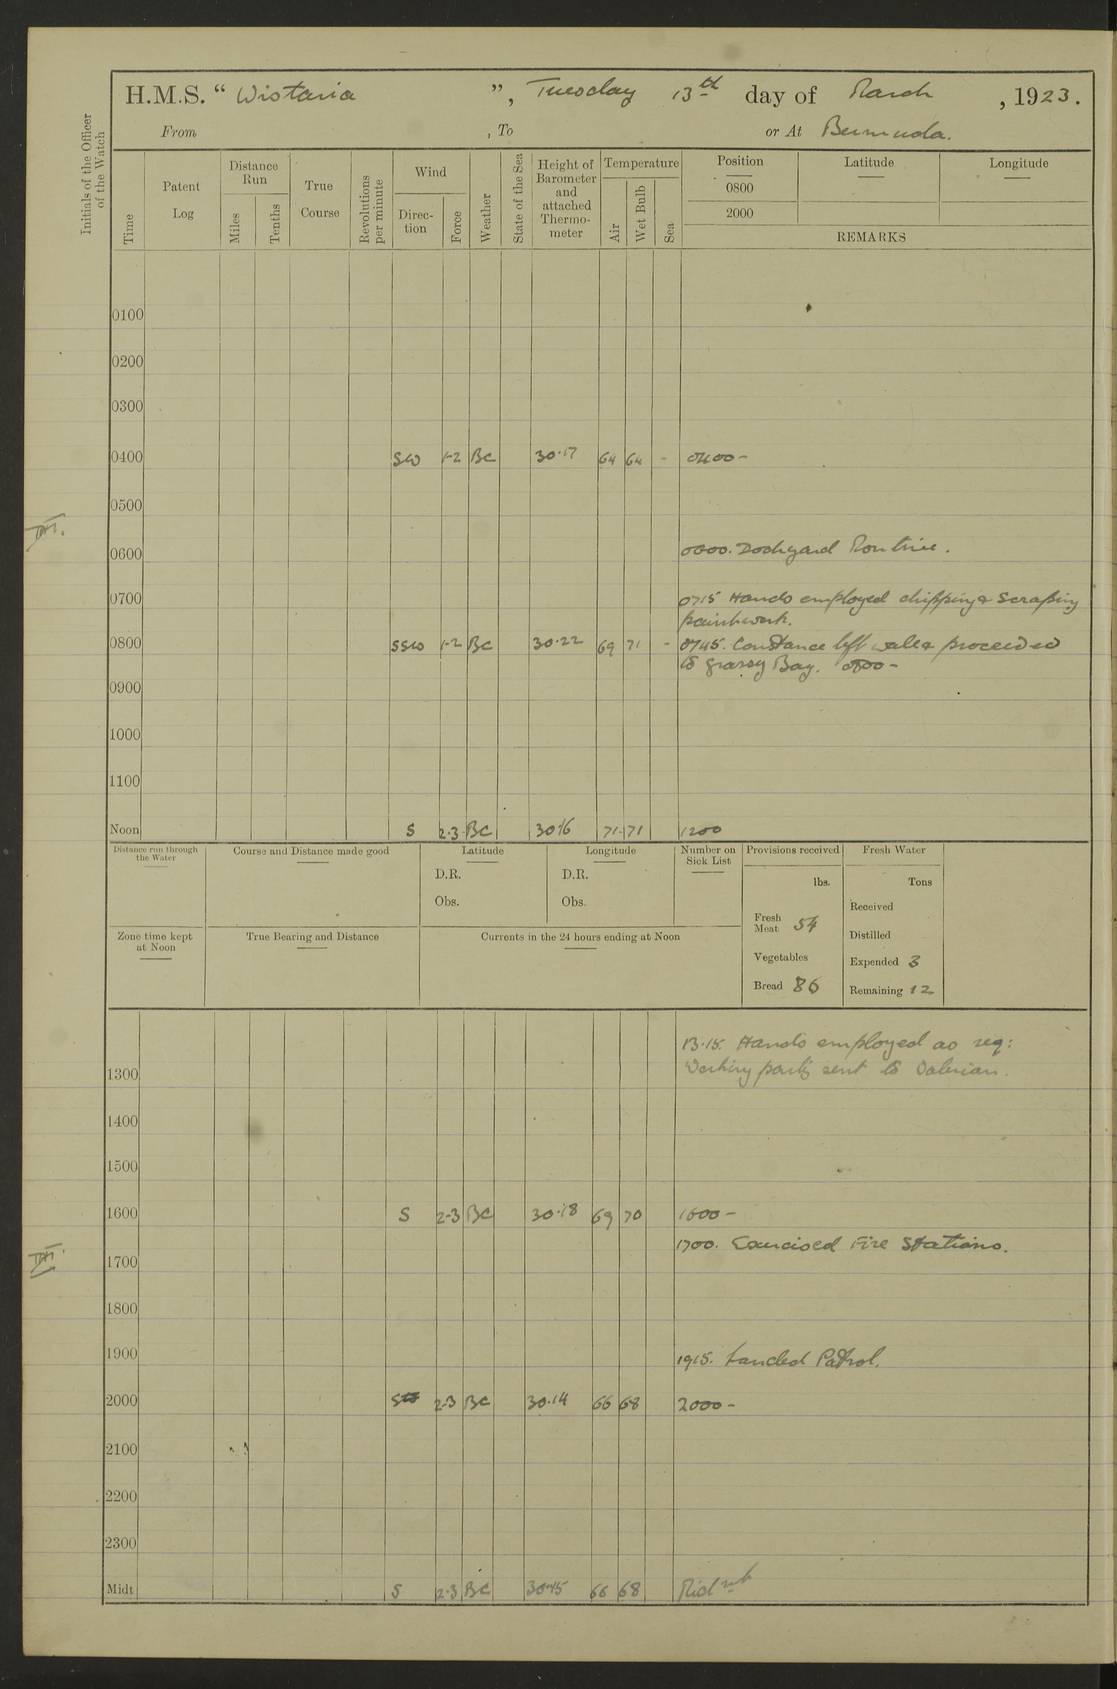 H.M.S. " Wistaria ", Tuesday 13th day of March , 1923.
From , To or At Bermuda.
Initials of the Officer of the Watch
Time
Patent Log
Distance Run
Miles
Tenths
True Course
Revolutions per minute
Wind
Direction
Force
Weather
State of the Sea
Height of Barometer and attached Thermometer
Temperature
Air
Wet Bulb
Sea
Position Latitude Longitude
0800
2000
REMARKS
0100
0200
0300
0400 SW 1-2 BC 30.17 64 64 - 0400-
0500
0600 0600. Dockyard Routine.
0700 0715 Hands employed chipping & Scraping
paintwork.
0800 SSW 1-2 BC 30.22 69 71 - 0745. Constance left wall & proceeded
to Grassy Bay. 0800-
0900
1000
1100
Noon S 2-3 BC 30.16 71 71 1200
Distance run through the Water
Course and Distance made good
Latitude
D.R.
Obs.
Longitude
D.R.
Obs.
Number on Sick List
Provisions received
lbs.
Fresh Meat 54
Vegetables
Bread 86
Fresh Water
Tons
Received
Distilled
Expended 3
Remaining 12
Zone time kept at Noon
True Bearing and Distance
Currents in the 24 hours ending at Noon
13.15. Hands employed as req:
1300 Working party sent to Valerian.
1400
1500
1600 S 2-3 BC 30.18 69 70 1600-
1700. Exercised Fire Stations.
1700
1800
1900 1915. Landed Patrol.
2000 S 2-3 BC 30.14 66 68 2000-
2100
2200
2300
Midt. S 2-3 BC 30.15 66 68 Midnt